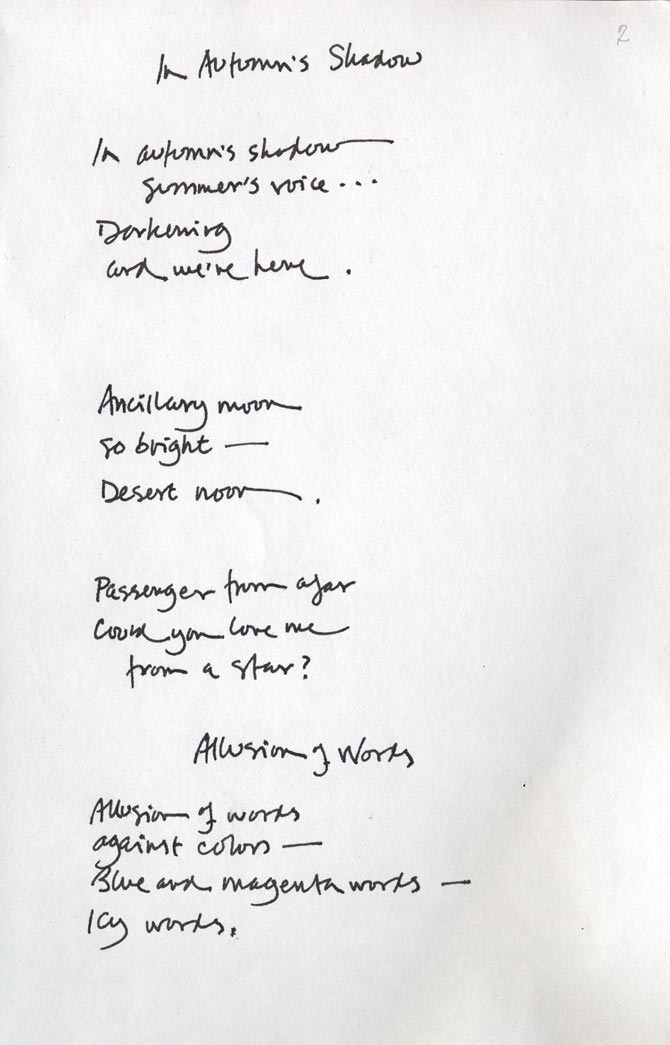 2
In Autumn's Shadow
In autumn's shadow
summer's voice...
Darkening
and we're here.
Ancillary moon
so bright —
Desert noon.
Passenger from afar
Could you love me
from a star?
Allusion of Words
Allusion of words
against colors —
Blue and magenta words —
Icy words.